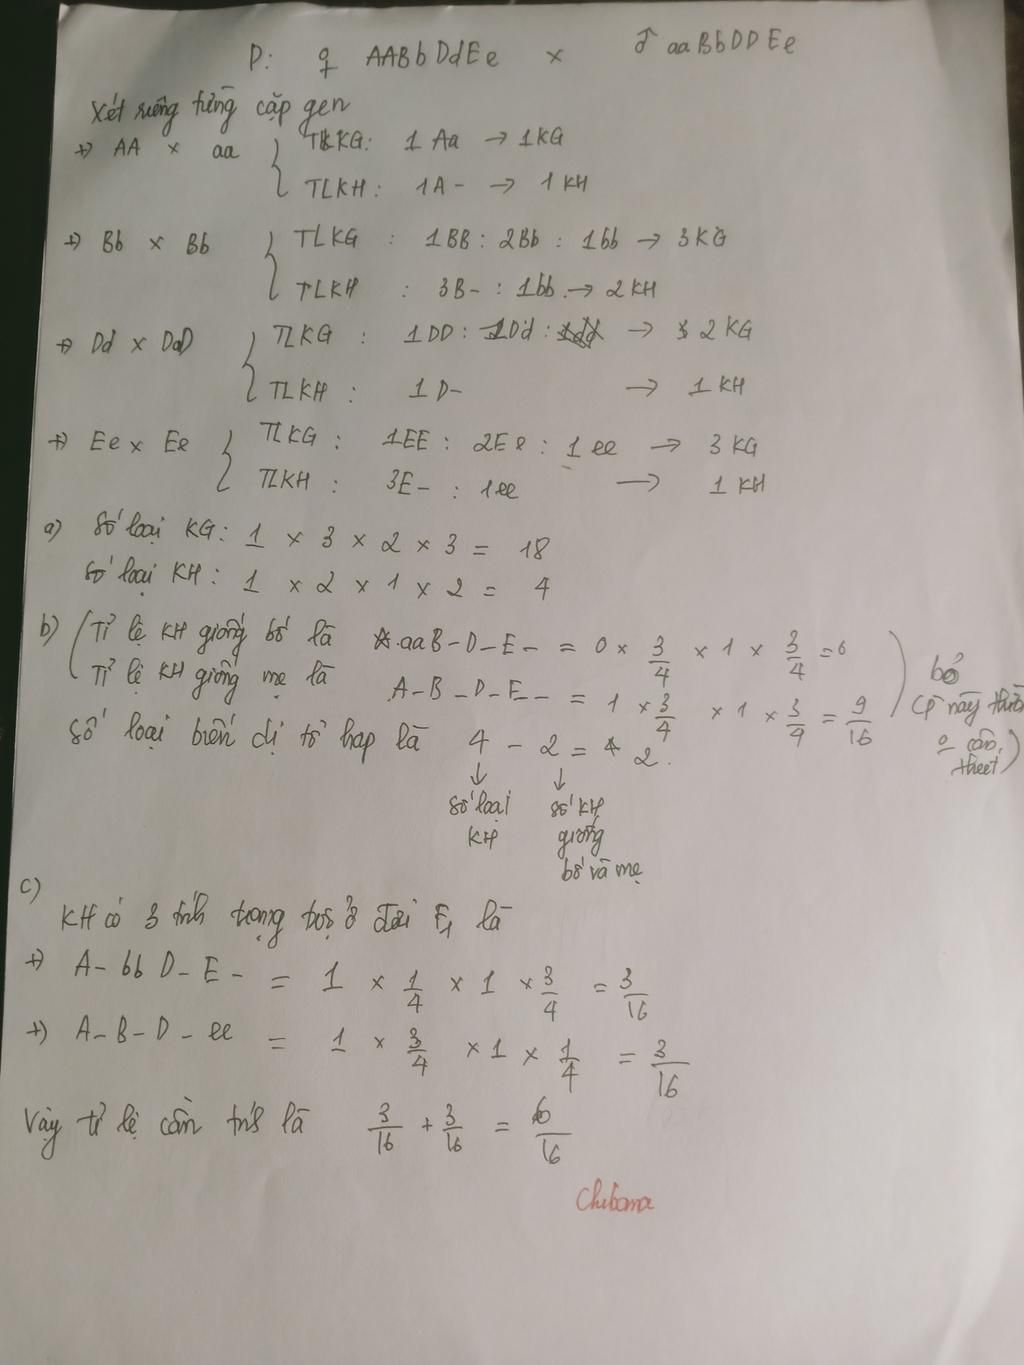 P: ♀ AABbDdEe × ♂ aaBbDDEe
Xét riêng từng cặp gen
+) AA × aa { TLKG: 1 Aa → 1KG
TLKH: 1A- → 1 KH
+) Bb × Bb { TLKG : 1BB : 2Bb : 1bb → 3KG
TLKH : 3B- : 1bb → 2 KH
+) Dd × DD { TLKG : 1DD : 1Dd → 2 KG
TLKH : 1 D- → 1 KH
+) Ee × Ee { TLKG : 1EE : 2Ee : 1 ee → 3 KG
TLKH : 3E- : 1ee → 1 KH
a) Số loại KG: 1 × 3 × 2 × 3 = 18
số loại KH: 1 × 2 × 1 × 2 = 4
b) ( Tỉ lệ KH giống bố là aaB-D-E- = 0 × 3/4 × 1 × 3/4 = 0
Tỉ lệ KH giống mẹ là A-B-D-E- = 1 × 3/4 × 1 × 3/4 = 9/16 ) bỏ
(p này
o cần
số loại biến dị tổ hợp là 4 - 2 = 2.
↓ ↓
số loại số KH
KH giống
bố và mẹ
c)
KH có 3 tính trạng trội ở đời F1 là
+) A-bbD-E- = 1 × 1/4 × 1 × 3/4 = 3/16
+) A-B-D-ee = 1 × 3/4 × 1 × 1/4 = 3/16
Vậy tỉ lệ cần tính là 3/16 + 3/16 = 6/16